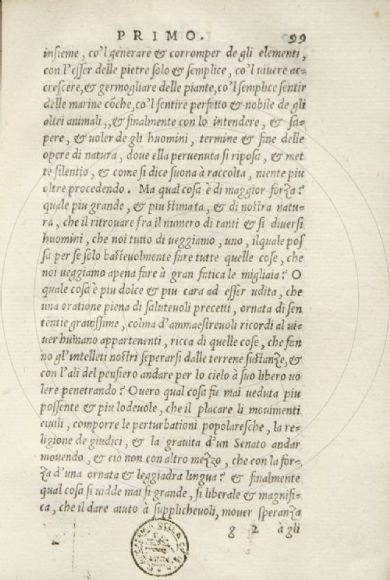 PRIMO. 99
insieme, co'l generare & corromper de gli elementi,
con l'esser delle pietre solo & semplice, co'l uiuere ac-
crescere, & germogliare delle piante, co'l semplice sentir
delle marine cõche, co'l sentire perfetto & nobile de gli
altri animali,, & finalmente con lo intendere, & sa-
pere, & uoler de gli huomini, termine & fine delle
opere di natura, doue ella peruenuta si riposa, & met
te silentio, & come si dice suona à raccolta, niente piu
oltre procedendo. Ma qual cosa è di maggior forza?
quale piu grande, & piu stimata, & di nostra natu-
ra, che il ritrouare fra il numero di tanti & si diuersi
huomini, che noi tutto dì ueggiamo, uno, il quale pos
sa per se solo basteuolmente fare tutte quelle cose, che
noi ueggiamo apena fare à gran fatica le migliaia? O
quale cosa è piu dolce & piu cara ad esser udita, che
una oratione piena di saluteuoli precetti, ornata di sen
tentie grauissime, colma d'ammaestreuoli ricordi al ui-
uer humano appartenenti, ricca di quelle cose, che fan
no gl'intelleti nostri seperarsi dalle terrene sustanze, &
con l'ali del pensiero andare per lo cielo à suo libero uo
lere penetrando? Ouero qual cosa fu mai ueduta piu
possente & piu lodeuole, che il placare li mouimenti
ciuili, comporre le perturbationi popolaresche, la re-
ligione de giudici, & la grauita d'un Senato andar
mouendo, & ciò non con altro mezzo, che con la for-
za d'una ornata & leggiadra lingua? & finalmente
qual cosa si uidde mai si grande, si liberale & magnifi
ca, che il dare aiuto à supplicheuoli, mouer speranza
g 2 à gli